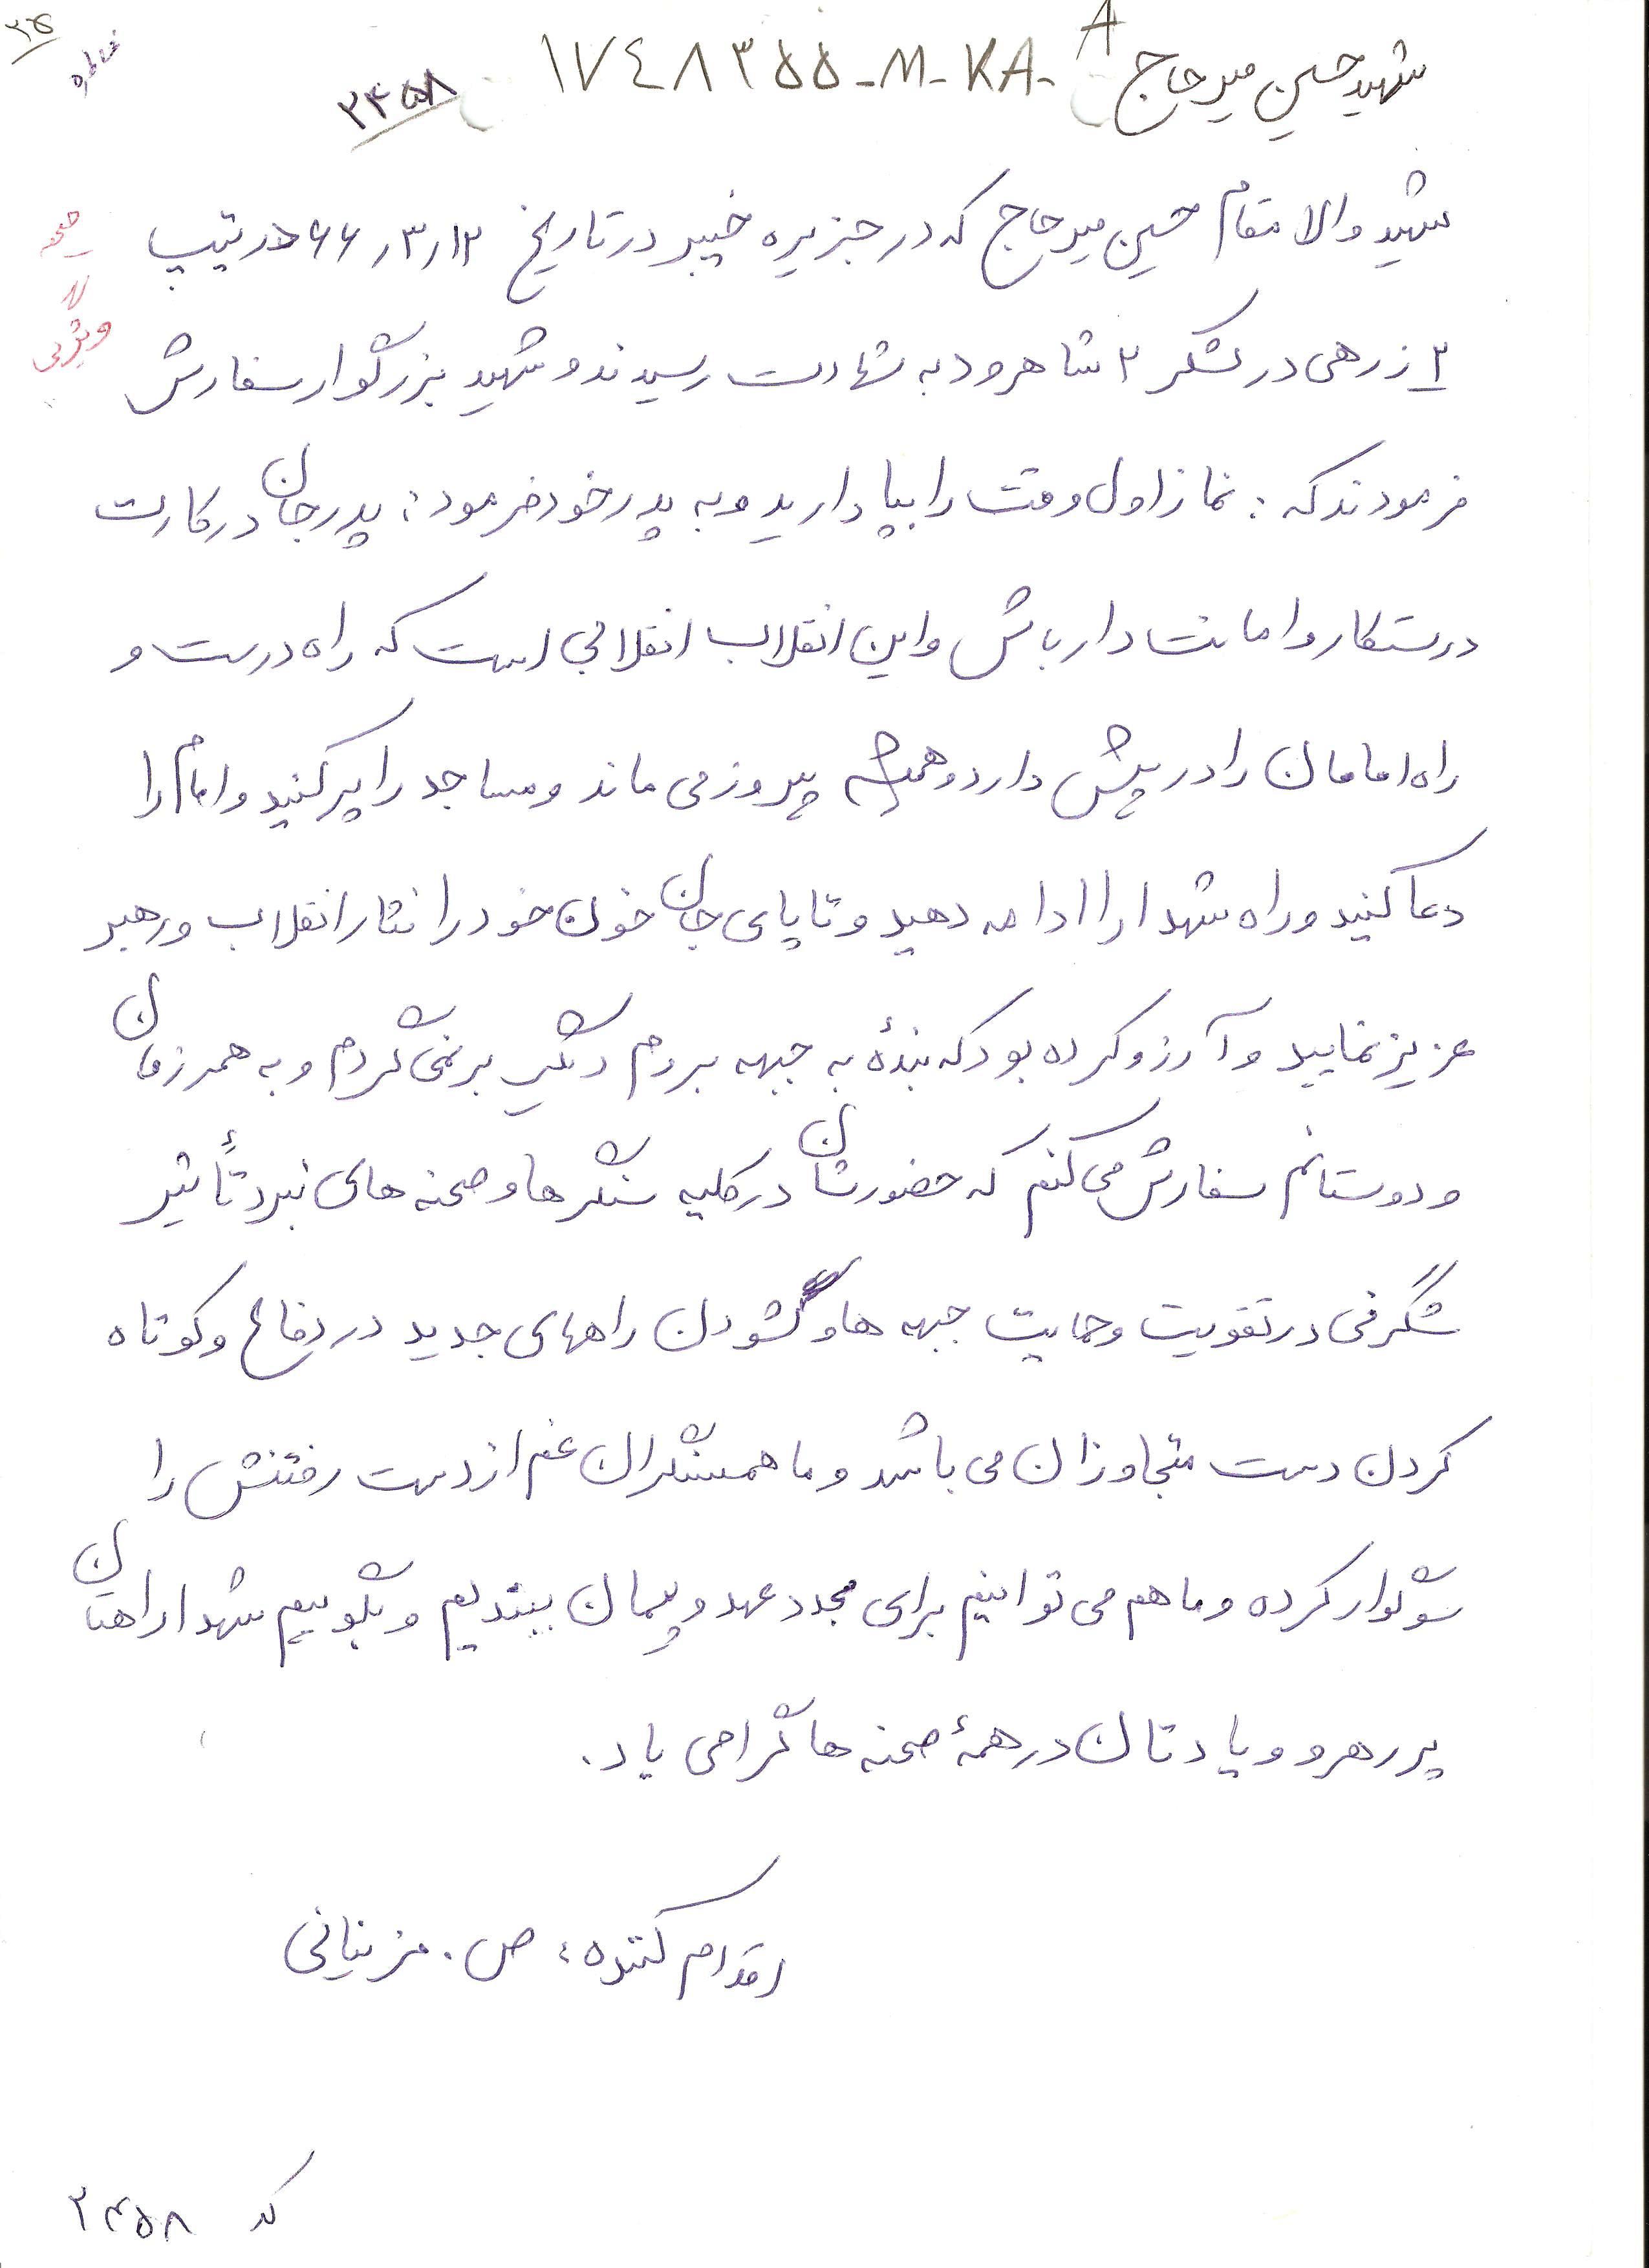 ۳۵
خاطره
شهید حسین میر حاج A
۱۷۴۸۳۵۵-M-KA-
۳۴۵۸
شهید والا مقام حسین میر حاج که در جزیره خیبر در تاریخ ۶۶٫۳٫۱۲ در تیپ
صحنه
ویژگی
۳ زرهی در لشکر ۳ شاهرود به شهادت رسیدند و شهید بزرگوار سفارش
فرمودند که : نماز اول وقت را بپا دارید و به پدر خود فرمود : پدر جان در کارت
درستکار و امانت دار باش و این انقلاب انقلابی است که راه درست و
راه امامان را در پیش دارد و همیشه پیروز می ماند و مساجد را پر کنید و امام را
دعا کنید و راه شهدا را ادامه دهید و تا پای جان خون خود را نثار انقلاب و رهبر
عزیز نمایید و آرزو کرده بود که بندهٔ به جبهه بروم دیگر بر نمی گردم و به همرزمان
و دوستانم سفارش می کنم که حضورشان در کلیه سنگرها و صحنه های نبرد تأثیر
شگرفی در تقویت و حمایت جبهه ها و گشودن راههای جدید در دفاع و کوتاه
کردن دست متجاوزان می باشد و ما همسنگران غم از دست رفتنش را
سوگوار کرده و ما هم می توانیم برای مجدد عهد و پیمان ببندیم و بگوییم شهدا راهتان
پر رهرو و یادتان در همهٔ صحنه ها گرامی باد.
اقدام کننده : ص . مزینانی
کد ۳۴۵۸